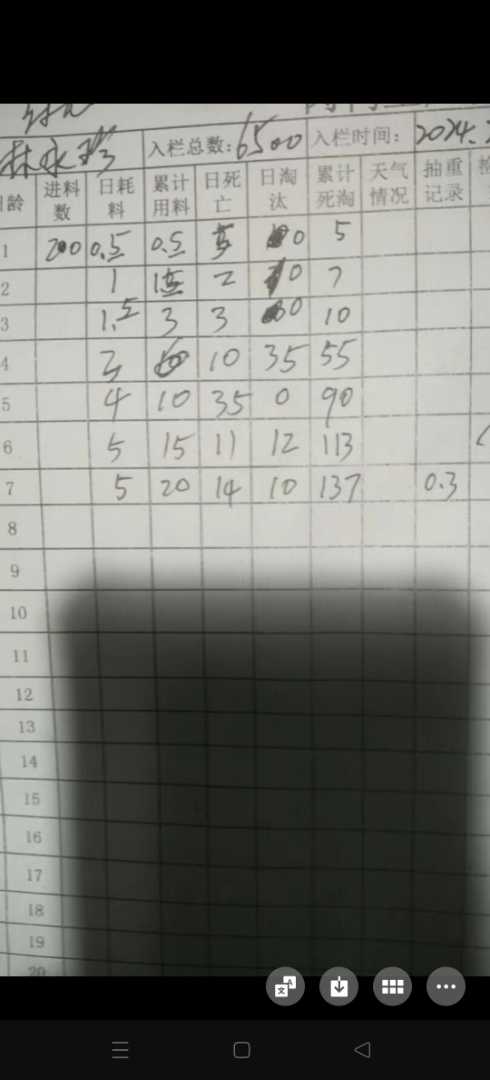 入栏总数: 6500 入栏时间: 2024.
日龄 进料数 日耗料 累计用料 日死亡 日淘汰 累计死淘 天气情况 抽重记录
1 200 0.5 0.5 5 0 5
2 1 1.5 2 0 7
3 1.5 3 3 0 10
4 3 6 10 35 55
5 4 10 35 0 90
6 5 15 11 12 113
7 5 20 14 10 137 0.3
8
9
10
11
12
13
14
15
16
17
18
19
20